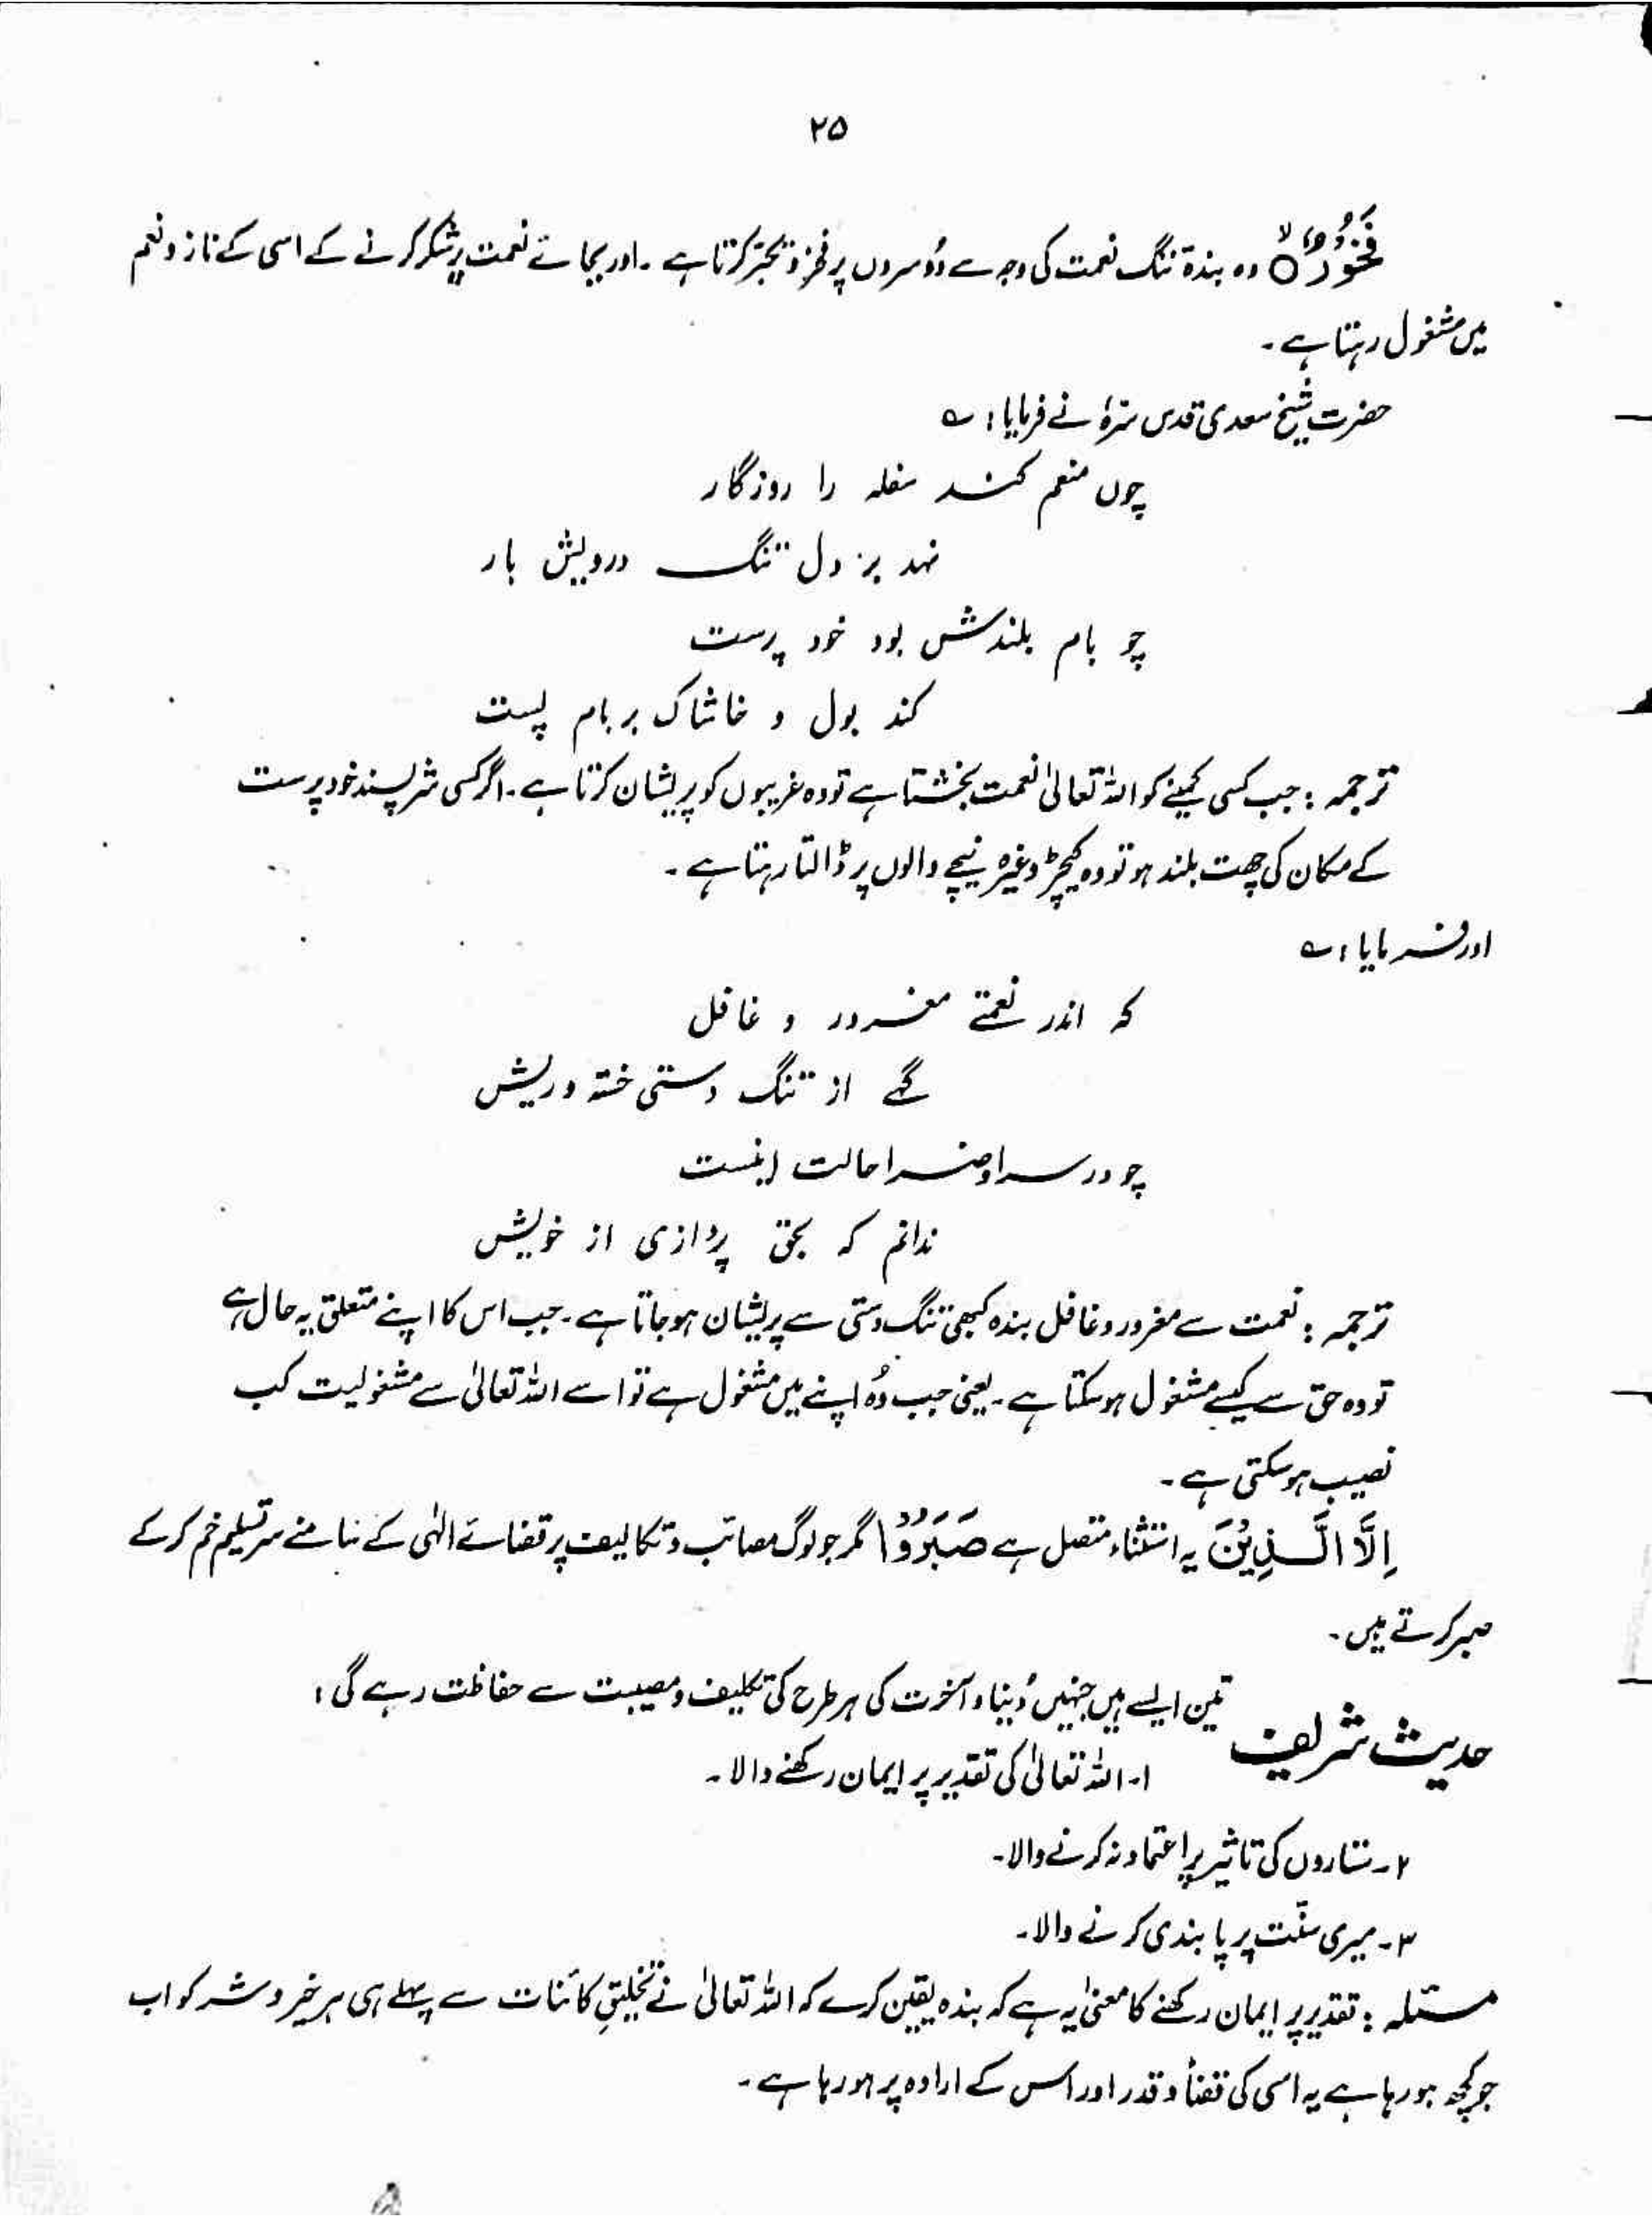 ۲۵
فَخُوْرٌ ۙ وہ بندۂ تنگ نعمت کی وجہ سے دُوسروں پر فخر و تکبّر کرتا ہے۔ اور بجائے نعمت پر شکر کرنے کے اسی کے ناز و نعم
میں مشغول رہتا ہے۔
حضرت شیخ سعدی قدس سرہٗ نے فرمایا: ؎
چوں منعم کند سفلہ را روزگار
نہد بر دل تنگ درویش بار
چو بام بلندش بود خود پرست
کند بول و خاشاک بر بام پست
ترجمہ: جب کسی کمینے کو اللہ تعالیٰ نعمت بخشتا ہے تو وہ غریبوں کو پریشان کرتا ہے۔ اگر کسی شر پسند خود پرست
کے مکان کی چھت بلند ہو تو وہ کیچڑ وغیرہ نیچے والوں پر ڈالتا رہتا ہے۔
اور فرمایا: ؎
کہ اندر نعمتے مغرور و غافل
گہے از تنگ دستی خستہ و ریش
چو در سرا و ضرا حالت اینست
ندانم کہ بحق پردازی از خویش
ترجمہ: نعمت سے مغرور و غافل بندہ کبھی تنگ دستی سے پریشان ہوجاتا ہے۔ جب اس کا اپنے متعلق یہ حال ہے
تو وہ حق سے کیسے مشغول ہوسکتا ہے۔ یعنی جب وُہ اپنے میں مشغول ہے تو اسے اللہ تعالیٰ سے مشغولیت کب
نصیب ہوسکتی ہے۔
اِلَّا الَّذِیْنَ یہ استثناء متصل ہے صَبَرُوْا مگر جو لوگ مصائب و تکالیف پر قضائے الٰہی کے سامنے سر تسلیم خم کر کے
صبر کرتے ہیں۔
حدیث شریف تین ایسے ہیں جنہیں دُنیا و آخرت کی ہر طرح کی تکلیف و مصیبت سے حفاظت رہے گی:
۱۔ اللہ تعالیٰ کی تقدیر پر ایمان رکھنے والا۔
۲۔ ستاروں کی تاثیر پر اعتماد نہ کرنے والا۔
۳۔ میری سنّت پر پابندی کرنے والا۔
مسئلہ: تقدیر پر ایمان رکھنے کا معنیٰ یہ ہے کہ بندہ یقین کرے کہ اللہ تعالیٰ نے تخلیقِ کائنات سے پہلے ہی ہر خیر و شر کو اب
جو کچھ ہو رہا ہے یہ اسی کی قضأ و قدر اور اس کے ارادہ پر ہو رہا ہے۔